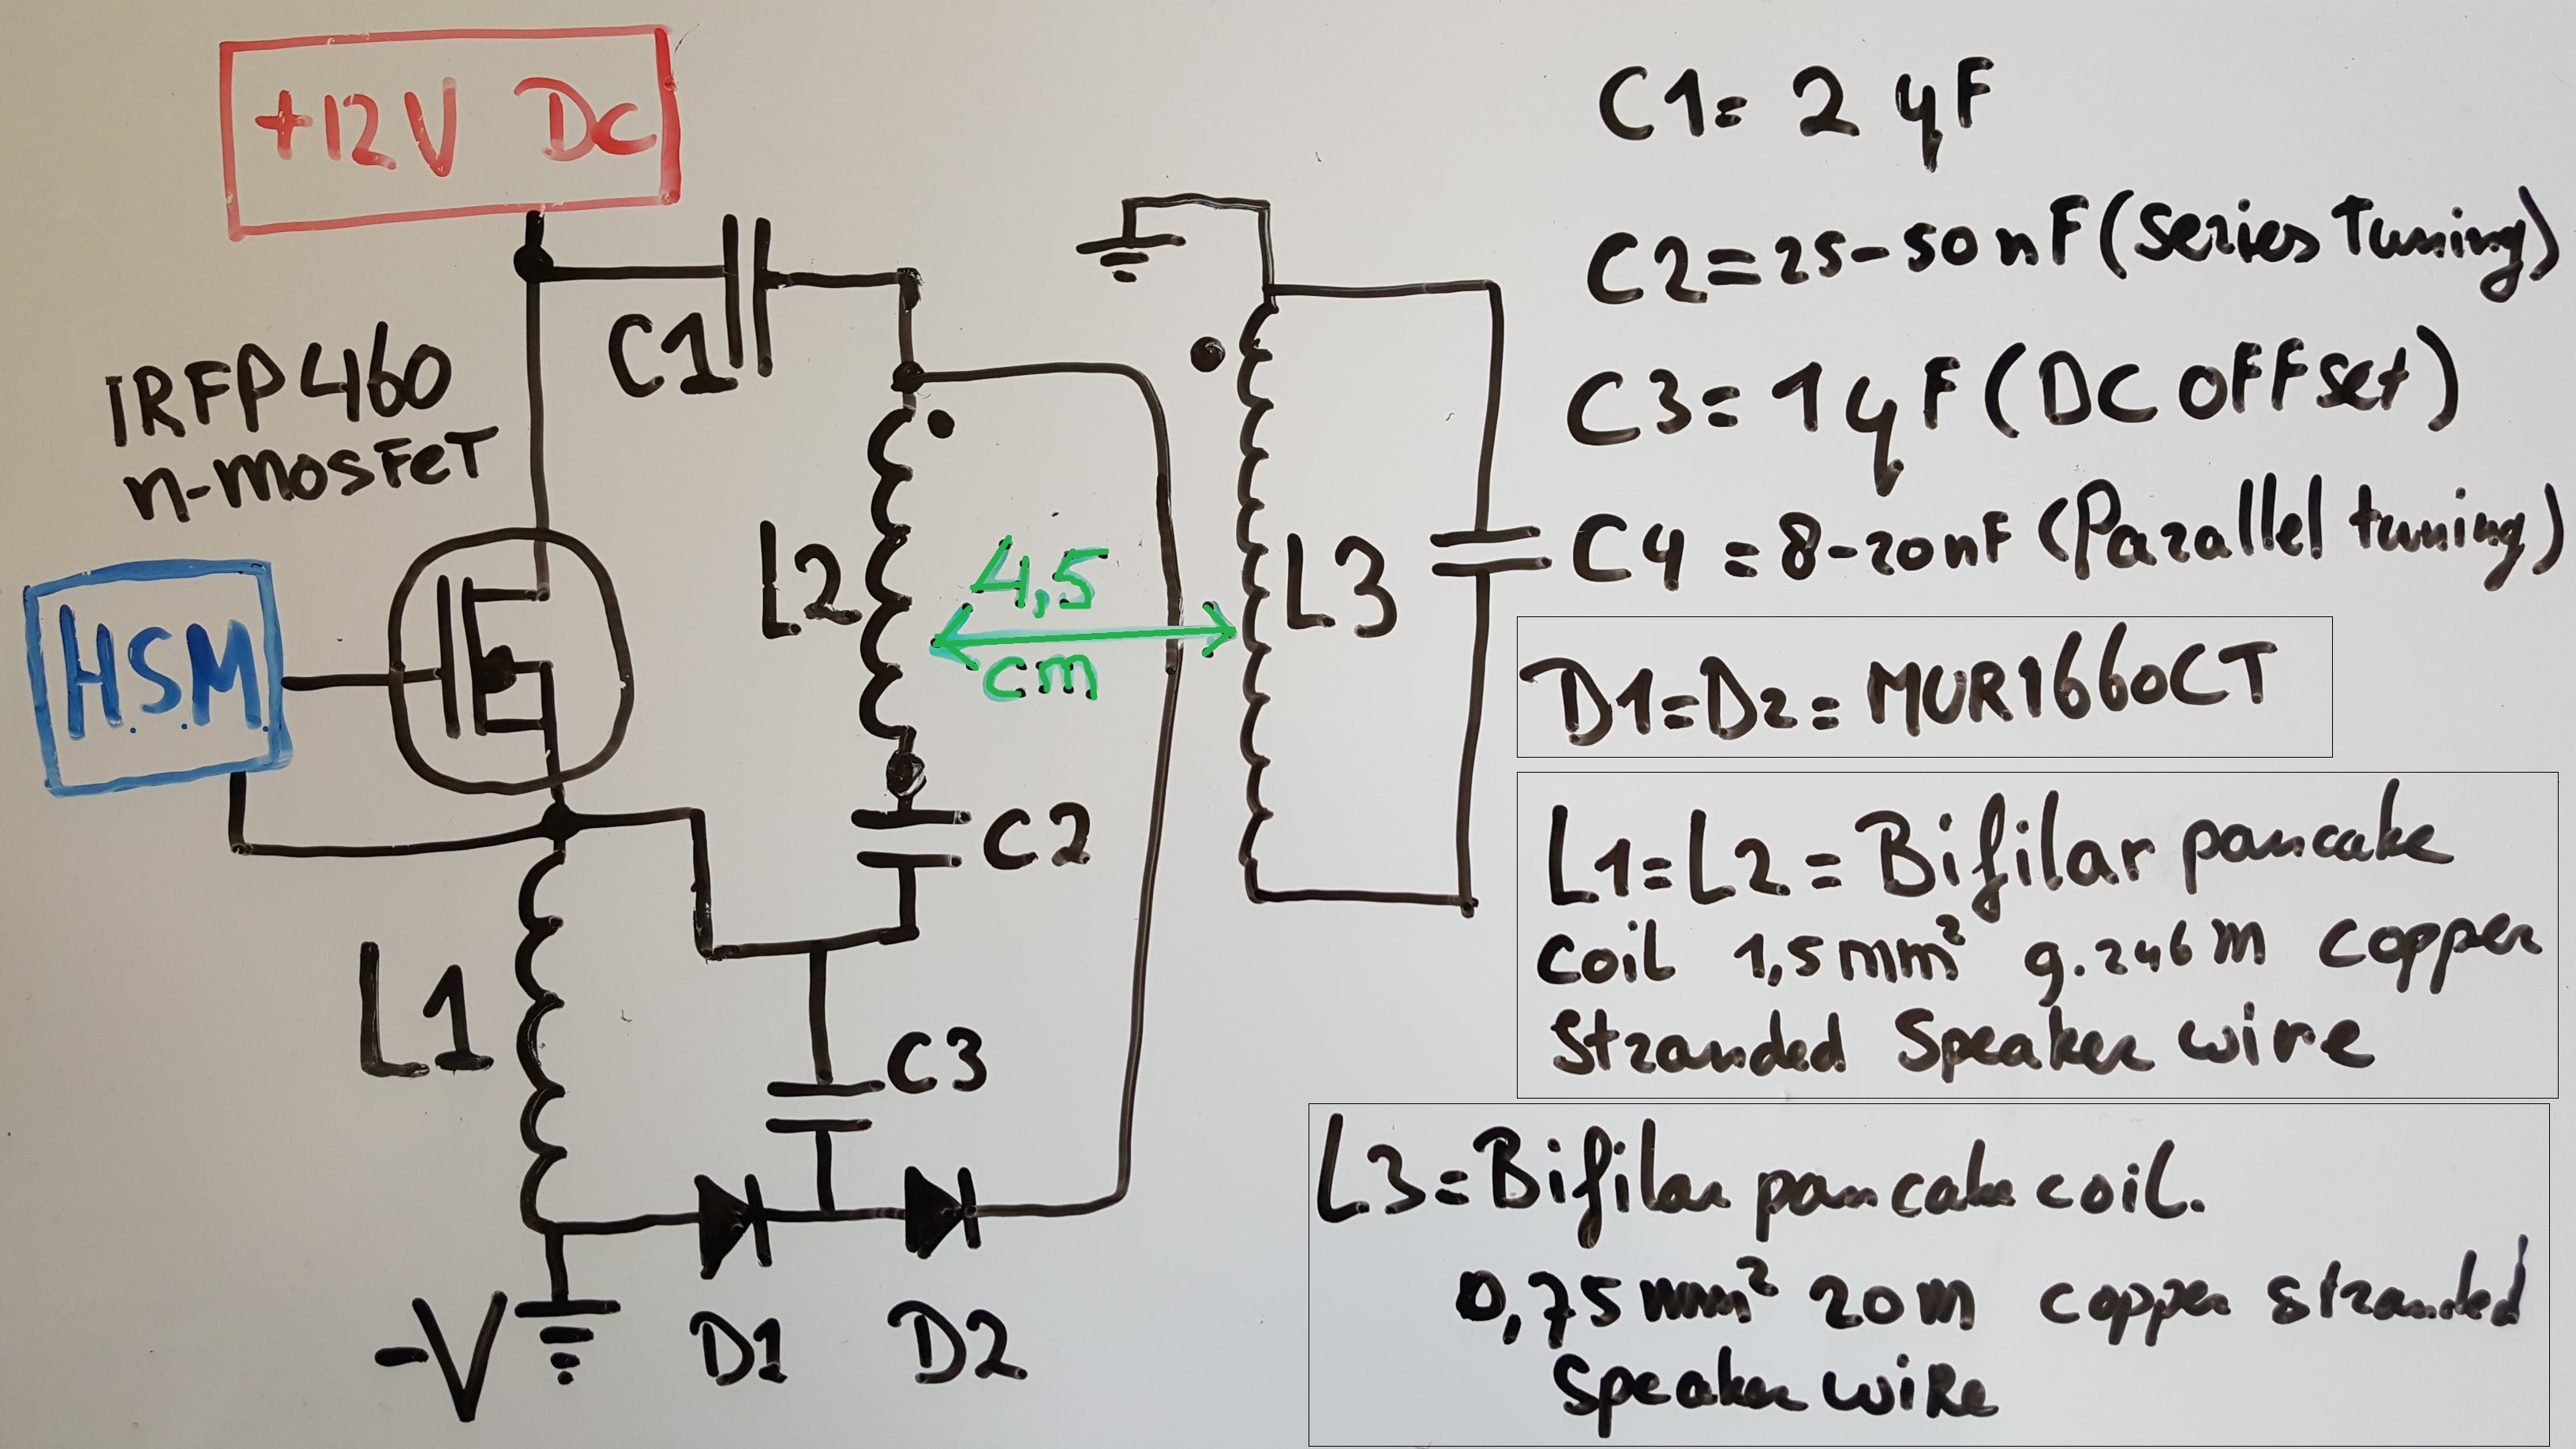 +12V DC
C1
IRFP460
n-mosFeT
H.S.M.
L2
4,5
cm
L3
C2
L1
C3
-V
D1
D2
C1= 2 µF
C2= 25-50nF (Series Tuning)
C3= 1µF (DC offset)
C4 = 8-20nF (Parallel tuning)
D1=D2= MUR1660CT
L1=L2= Bifilar pancake
coil 1,5mm² 9.246m copper
Stranded Speaker wire
L3= Bifilar pancake coil.
0,75mm² 20m copper stranded
Speaker wire